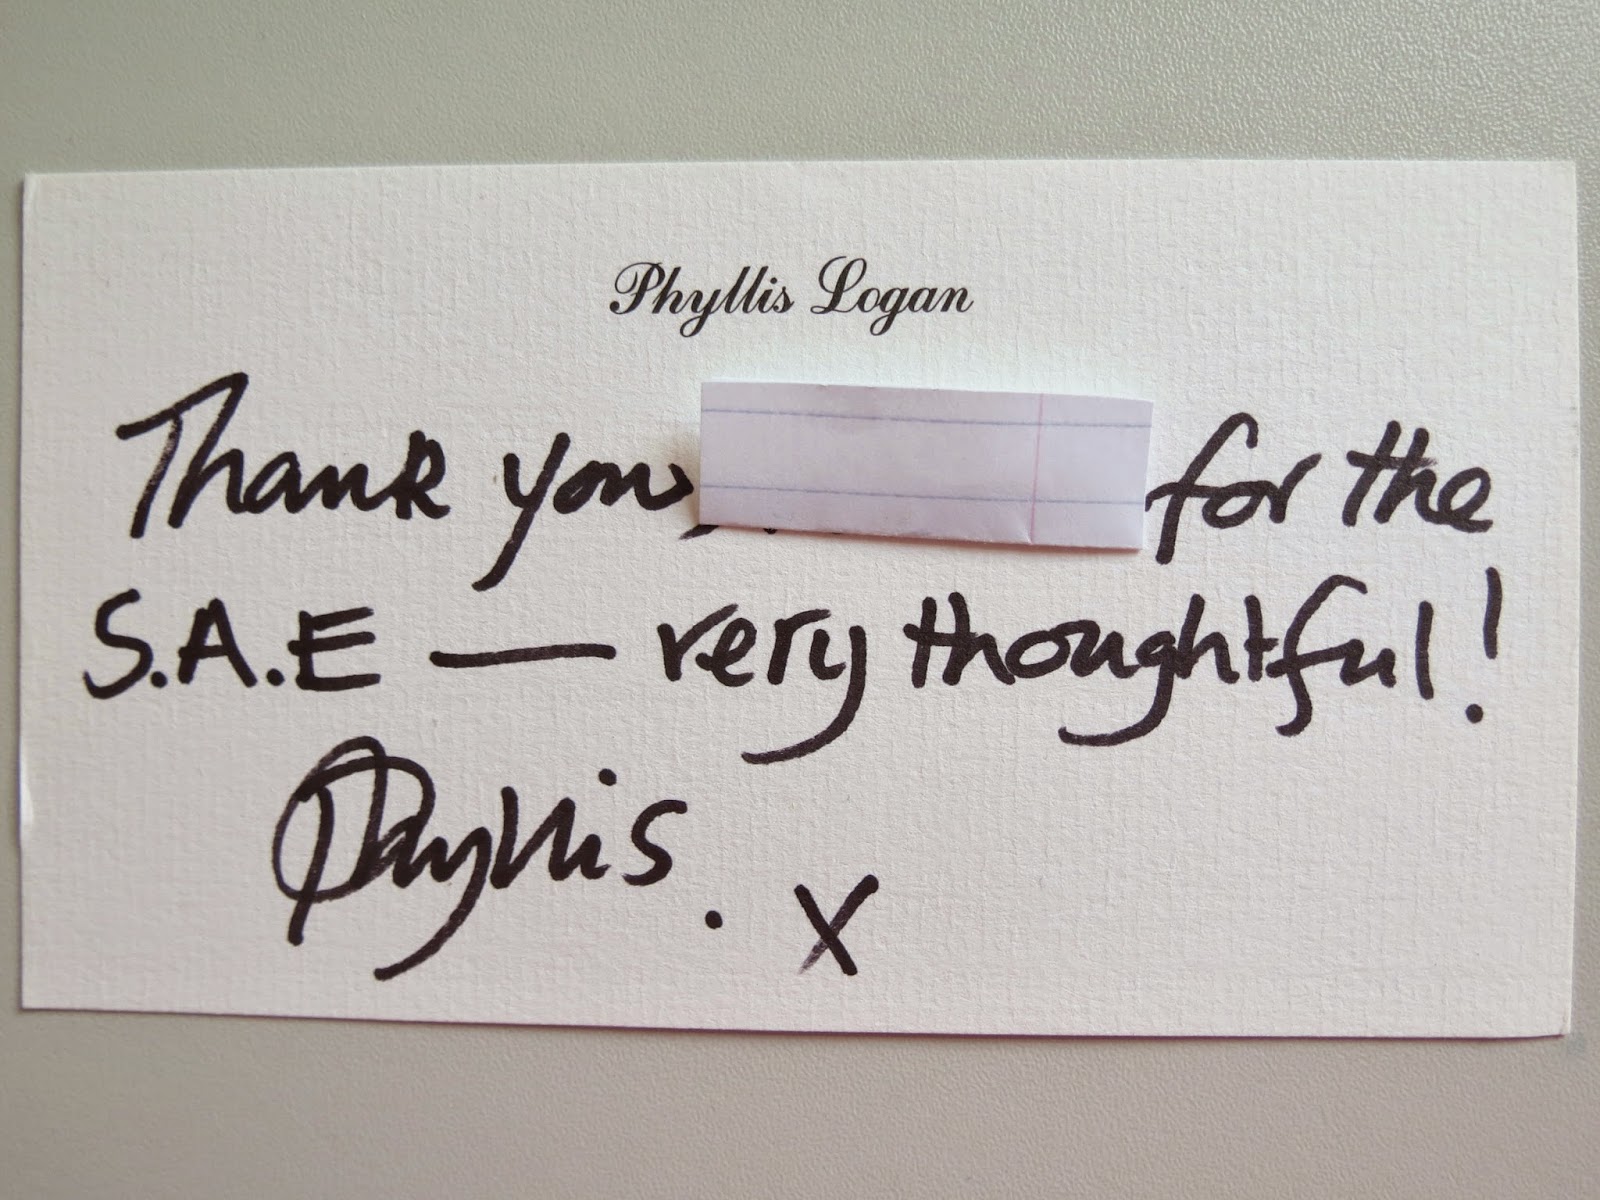 Phyllis Logan
Thank you for the
S.A.E — very thoughtful!
Phyllis. X